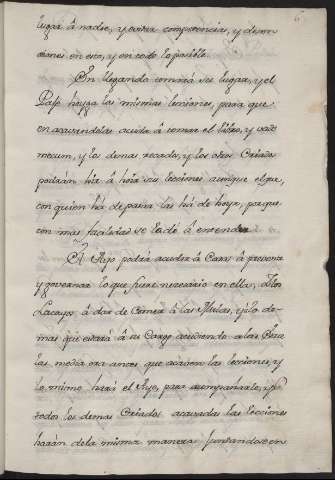 6
lugar â nadie, y evitar competencias, y desor
denes en esto, y en todo lo posible.
En llegando tomará su lugar, y el
Paje hayga las mismas leciones, para que
en acavandolas acuda â tomar el libro, y vade
mecum, y los demas recado, y los otros Criados
podrán hir â hoir sus lecciones aunque el que,
con quien há de pasar las há de hoyr, porque
con mas facilidad se la dé â entender
El Ayo podrá acudir â Casa, â prevenir
y governar lo que fuere necesario en ella,
Lacayo â dar de Comer â las Mulas, y lo de-
mas que estará â su Cargo acudiendo a las
media ora antes que acaben las lecciones, y
lo mismo hará el Ayo para acompañarle, y
todos los demas Criados acavadas las lecciones
harán de la misma manera juntandose en